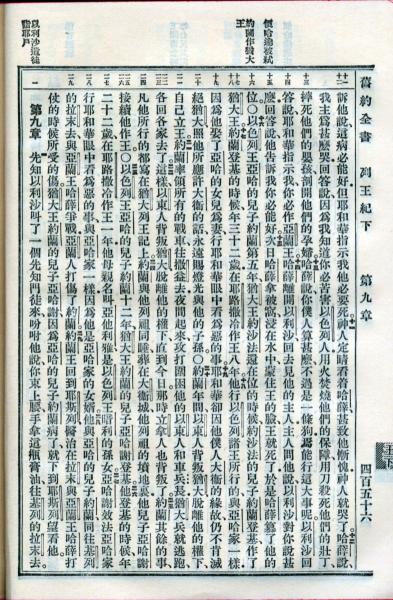 舊約全書 列王紀下 第九章 四百五十六
便哈達被弒
約蘭作猶大王
以利沙遣徒膏耶戶
訴他說這病必能好但耶和華指示我他必要死神人定睛看着哈薛甚至他慚愧神人就哭了哈薛說
我主爲甚麼哭回答說因爲我知道你必苦害以色列人用火焚燒他們的保障用刀殺死他們的壯丁
摔死他們的嬰孩剖開他們的孕婦哈薛說你僕人算甚麼不過是一條狗焉能行這大事呢以利沙回
答說耶和華指示我你必作亞蘭王哈薛離開以利沙回去見他的主人主人問他說以利沙對你說甚
麼回答說他告訴我你必能好次日哈薛拿被窩浸在水中蒙住王的臉王就死了於是哈薛篡了他的
位○以色列王亞哈的兒子約蘭第五年猶大王約沙法還在位的時候約沙法的兒子約蘭登基作了
猶大王約蘭登基的時候年三十二歲在耶路撒冷作王八年他行以色列諸王所行的與亞哈家一樣
因爲他娶了亞哈的女兒爲妻行耶和華眼中看爲惡的事耶和華卻因他僕人大衛的緣故仍不肯滅
絕猶大照他所應許大衛的話永遠賜燈光與他的子孫○約蘭年間以東人背叛猶大脫離他的權下
自己立王約蘭率領所有的戰車往撒益去夜間起來攻打圍困他的以東人和車兵長猶大兵就逃跑
各回各家去了這樣以東人背叛猶大脫離他的權下直到今日那時立拿人也背叛了約蘭其餘的事
凡他所行的都寫在猶大列王記上約蘭與他列祖同睡葬在大衛城他列祖的墳地裏他兒子亞哈謝
接續他作王○以色列王亞哈的兒子約蘭十二年猶大王約蘭的兒子亞哈謝登基他登基的時候年
二十二歲在耶路撒冷作王一年他母親名叫亞他利雅是以色列王暗利的孫女亞哈謝效法亞哈家
行耶和華眼中看爲惡的事與亞哈家一樣因爲他是亞哈家的女婿他與亞哈的兒子約蘭同往基列
的拉末去與亞蘭王哈薛爭戰亞蘭人打傷了約蘭約蘭王回到耶斯列醫治在拉末與亞蘭王哈薛打
仗的時候所受的傷猶大王約蘭的兒子亞哈謝因爲亞哈的兒子約蘭病了就下到耶斯列望看他
第九章 先知以利沙叫了一個先知門徒來吩咐他說你束上腰手拿這瓶膏油往基列的拉末去